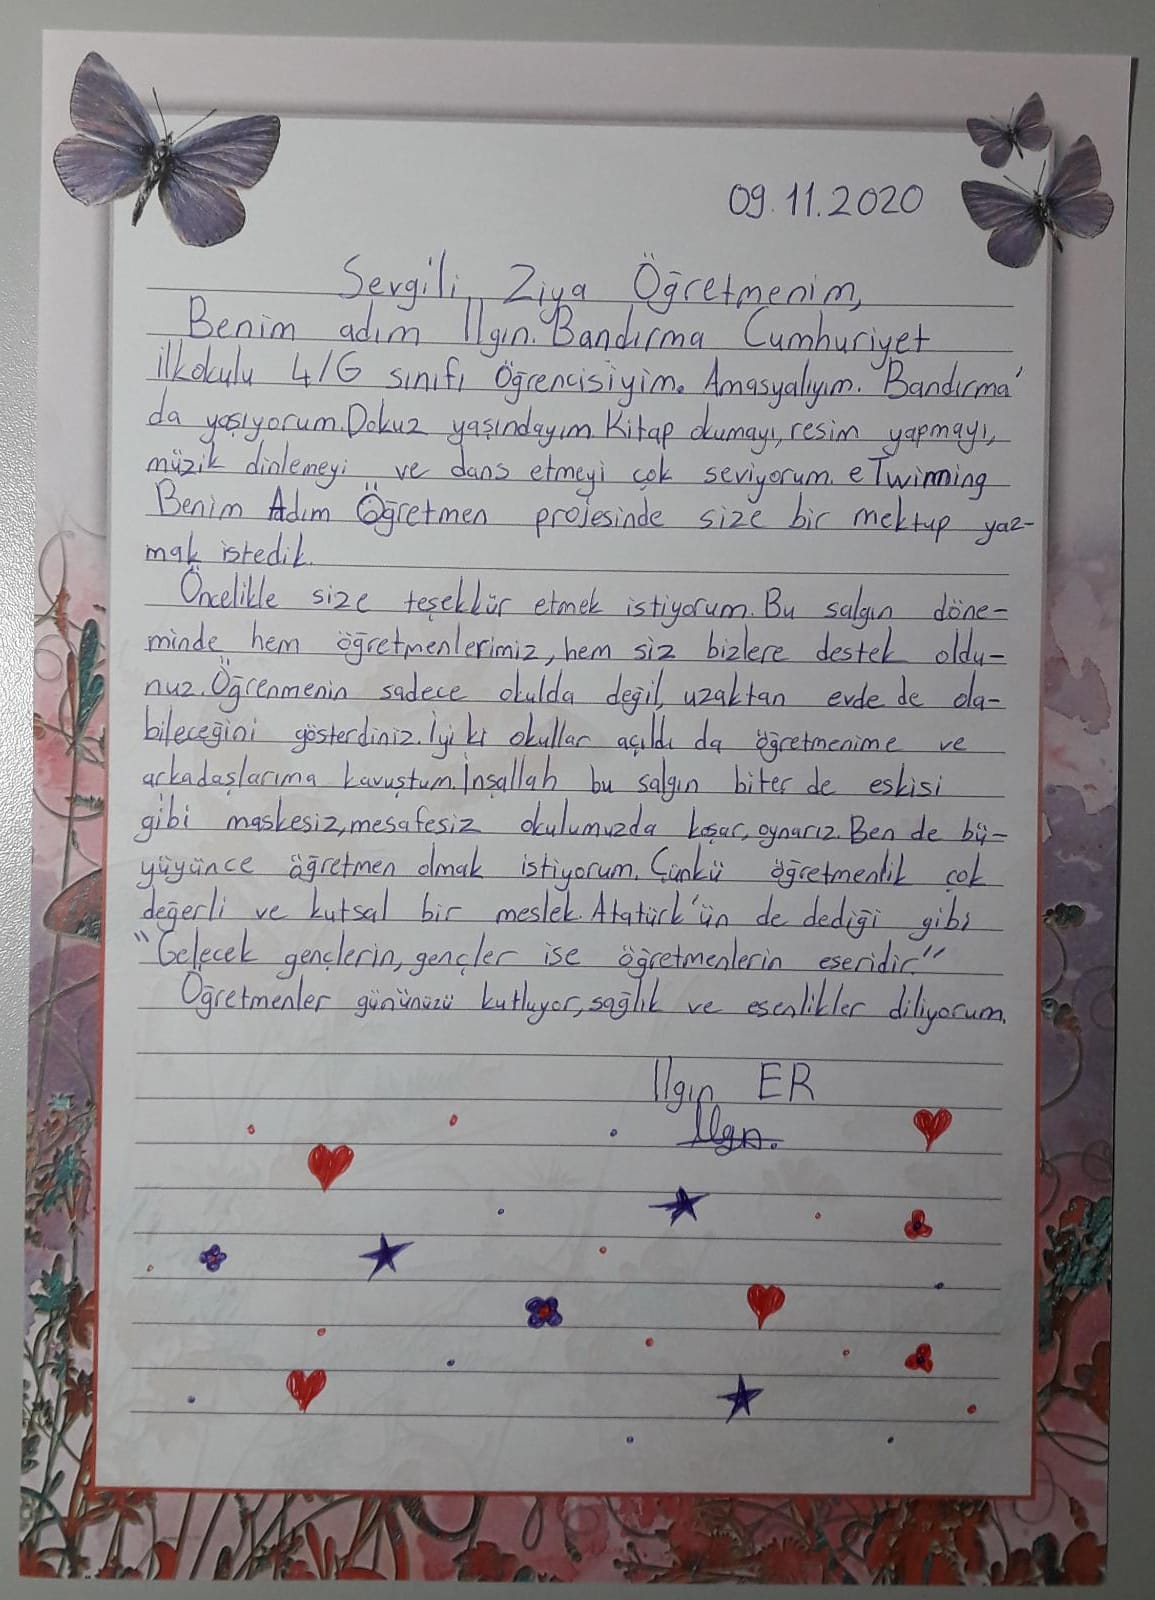 09.11.2020
Sevgili Ziya Öğretmenim,
Benim adım Ilgın. Bandırma Cumhuriyet
ilkokulu 4/G sınıfı Öğrencisiyim. Amasyalıyım. Bandırma'
da yaşıyorum. Dokuz yaşındayım. Kitap okumayı, resim yapmayı,
müzik dinlemeyi ve dans etmeyi çok seviyorum. eTwinning
Benim Adım Öğretmen projesinde size bir mektup yaz-
mak istedik.
Öncelikle size teşekkür etmek istiyorum. Bu salgın döne-
minde hem öğretmenlerimiz, hem siz bizlere destek oldu-
nuz. Öğrenmenin sadece okulda değil, uzaktan evde de ola-
bileceğini gösterdiniz. İyi ki okullar açıldı da öğretmenime ve
arkadaşlarıma kavuştum. İnşallah bu salgın biter de eskisi
gibi maskesiz, mesafesiz okulumuzda koşar, oynarız. Ben de bü-
yüyünce öğretmen olmak istiyorum. Çünkü öğretmenlik çok
değerli ve kutsal bir meslek. Atatürk'ün de dediği gibi
"Gelecek gençlerin, gençler ise öğretmenlerin eseridir."
Öğretmenler gününüzü kutluyor, sağlık ve esenlikler diliyorum.
Ilgın ER
Ilgın.